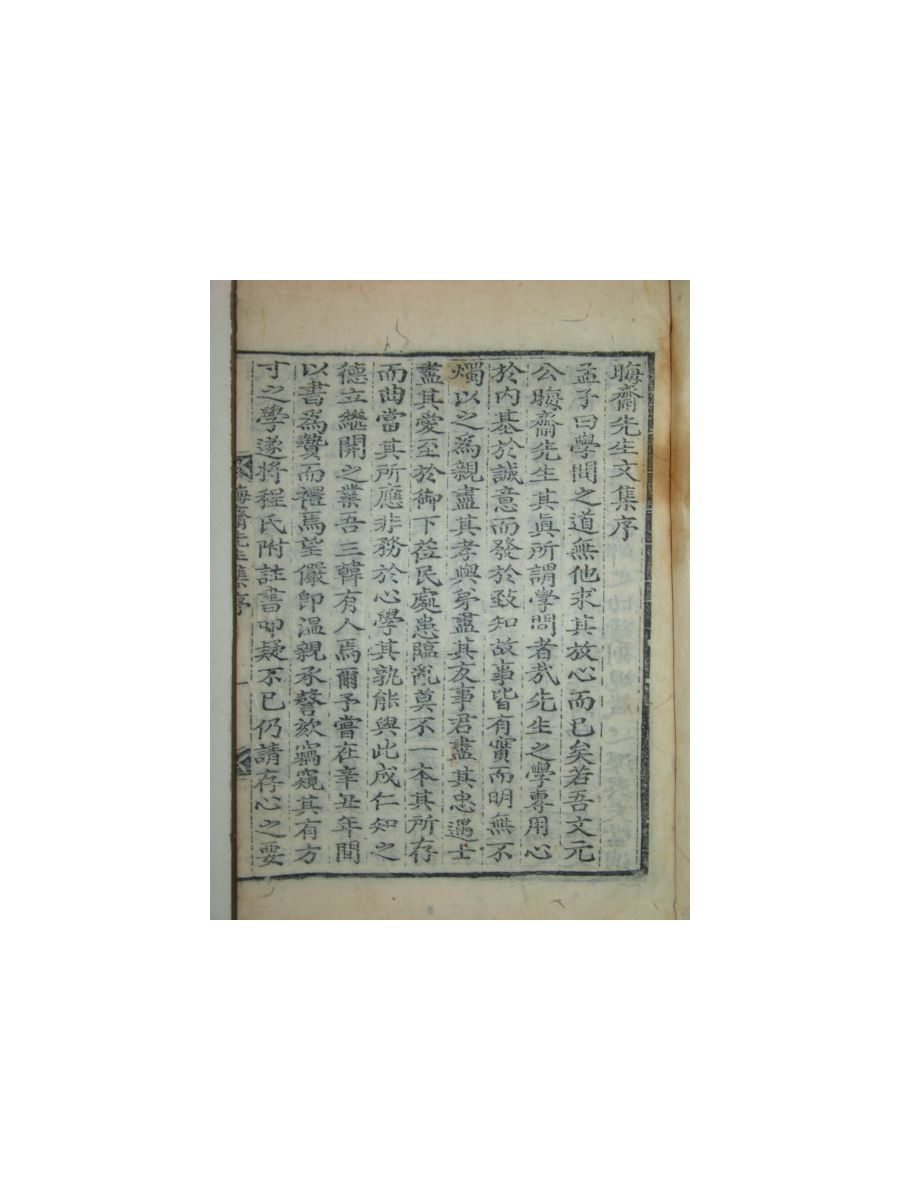 晦齋先生文集序
孟子曰學問之道無他求其放心而已矣若吾文元
公晦齋先生其眞所謂學問者哉先生之學專用心
於內基於誠意而發於致知故事皆有實而明無不
燭以之爲親盡其孝與弟盡其友事君盡其忠遇士
盡其愛至於御下莅民處患臨亂莫不一本其所存
而曲當其所應非務於心學其孰能與此成仁知之
德立繼開之業吾三韓有人焉爾予嘗在辛丑年間
以書爲贄而禮焉望儼卽溫親承謦欬竊窺其有方
寸之學遂將程氏附註書叩疑不已仍請存心之要
晦齋先生集序 一